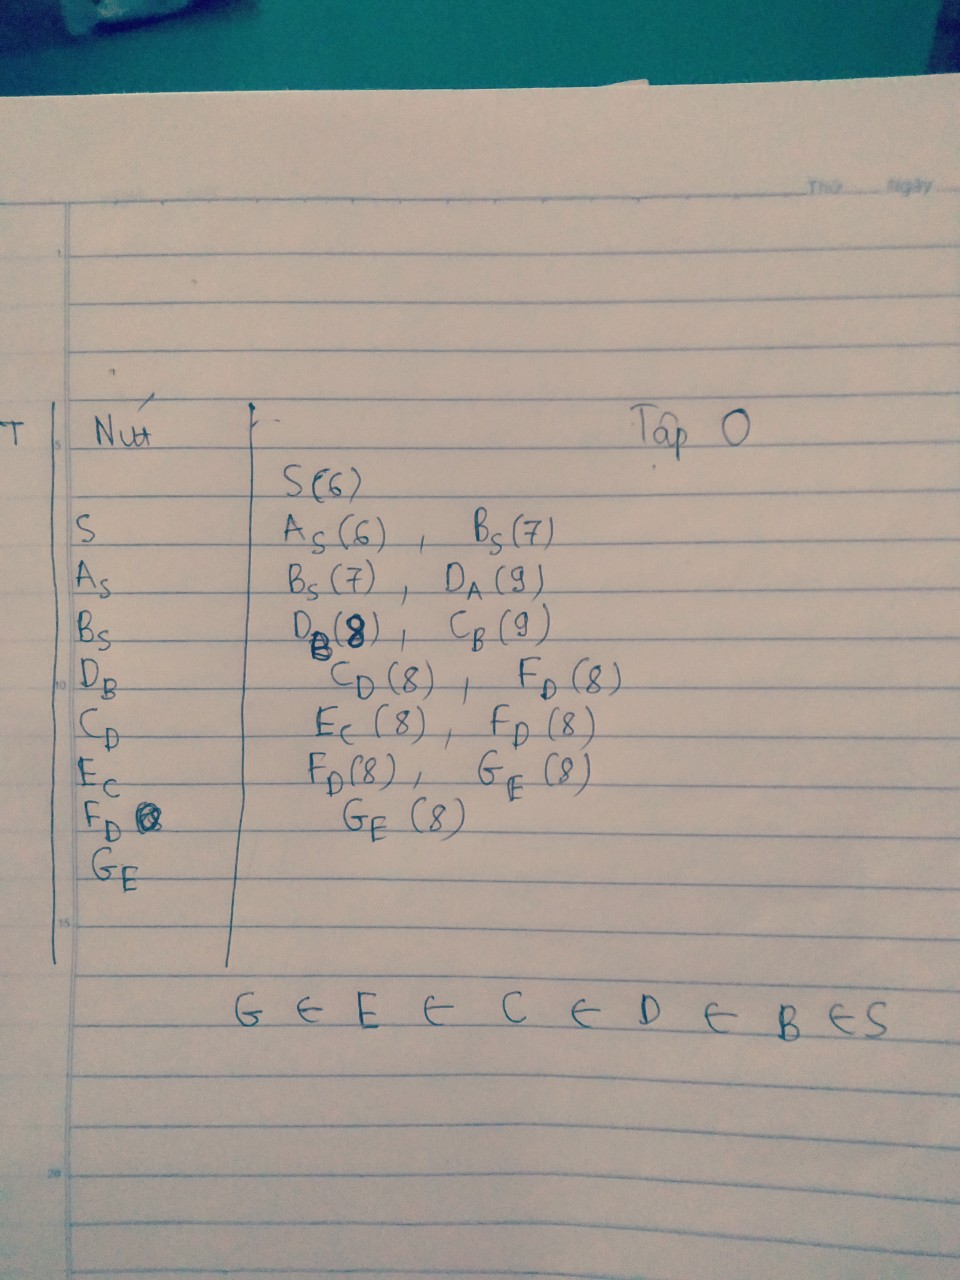 Thứ Ngày
T Nút Tập O
S(6)
S A_S(6) , B_S(7)
A_S B_S(7) , D_A(9)
B_S D_B(8) , C_B(9)
D_B C_D(8) , F_D(8)
C_D E_C(8) , F_D(8)
E_C F_D(8) , G_E(8)
F_D G_E(8)
G_E
G ← E ← C ← D ← B ← S
1
5
10
15
20